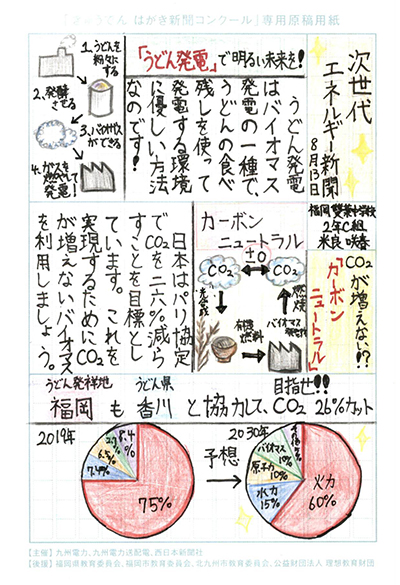 「み・らいでん はがき新聞コンクール」専用原稿用紙
次世代
エネルギー新聞
8月13日
福岡雙葉小学校
2年C組
米良 咲春
「うどん発電」で明るい未来を!
うどん発電
はバイオマス
発電の一種で、
うどんの食べ
残しを使って
発電する環境
に優しい方法
なのです!
1.うどんを
粉々に
する
2.発酵
させる
3.バイオガス
ができる
4.ガスを
燃やして
発電!
CO₂が増えない!?
「カーボン
ニュートラル」
カーボン
ニュートラル
±0
CO₂
CO₂
光合成
燃焼
有機
燃料
バイオマス
発電
日本はパリ協定
でCO₂を二六%減ら
すことを目標とし
ています。これを
実現するためにCO₂
が増えないバイオマス
を利用しましょう。
うどん発祥地
うどん県
目指せ!!
福岡も香川と協力して、CO₂ 26%カット
2019年
75%
7.4%
6.5%
2.7%
8.4%
予想
2030年
火力
60%
水力
15%
原子力
10%
バイオマス
10%
【主催】九州電力、九州電力送配電、西日本新聞社
【後援】福岡県教育委員会、福岡市教育委員会、北九州市教育委員会、公益財団法人 理想教育財団